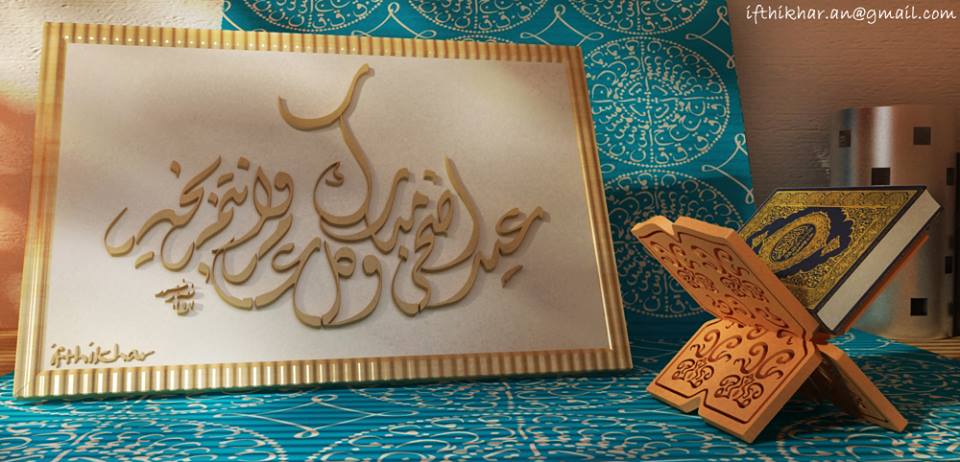 ifthikhar.an@gmail.com
عيد اضحى مبارك وكل عام وانتم بخير
ifthikhar